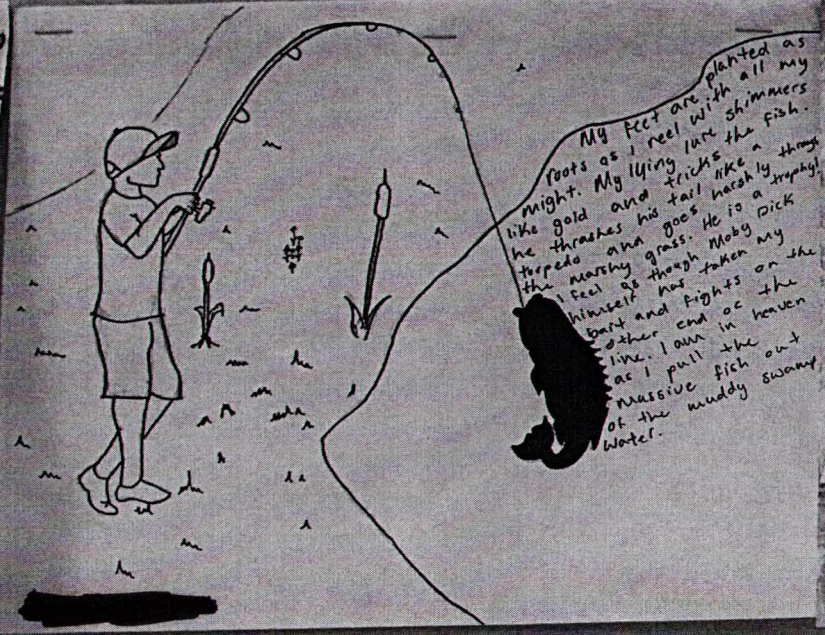 My feet are planted as
roots as I reel with all my
might. My lying lure shimmers
like gold and tricks the fish.
he thrashes his tail like a
torpedo and goes harshly through
the marshy grass. He is a trophy!
I feel as though Moby Dick
himself has taken my
bait and fights on the
other end of the
line. I am in heaven
as I pull the
massive fish out
of the muddy swamp
water.